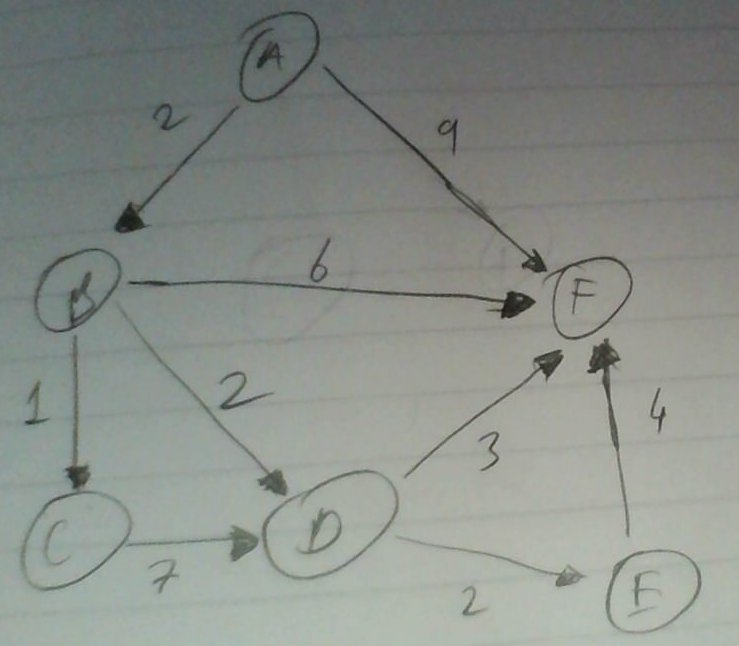 A
2
9
B
6
F
1
2
3
4
C
7
D
2
E